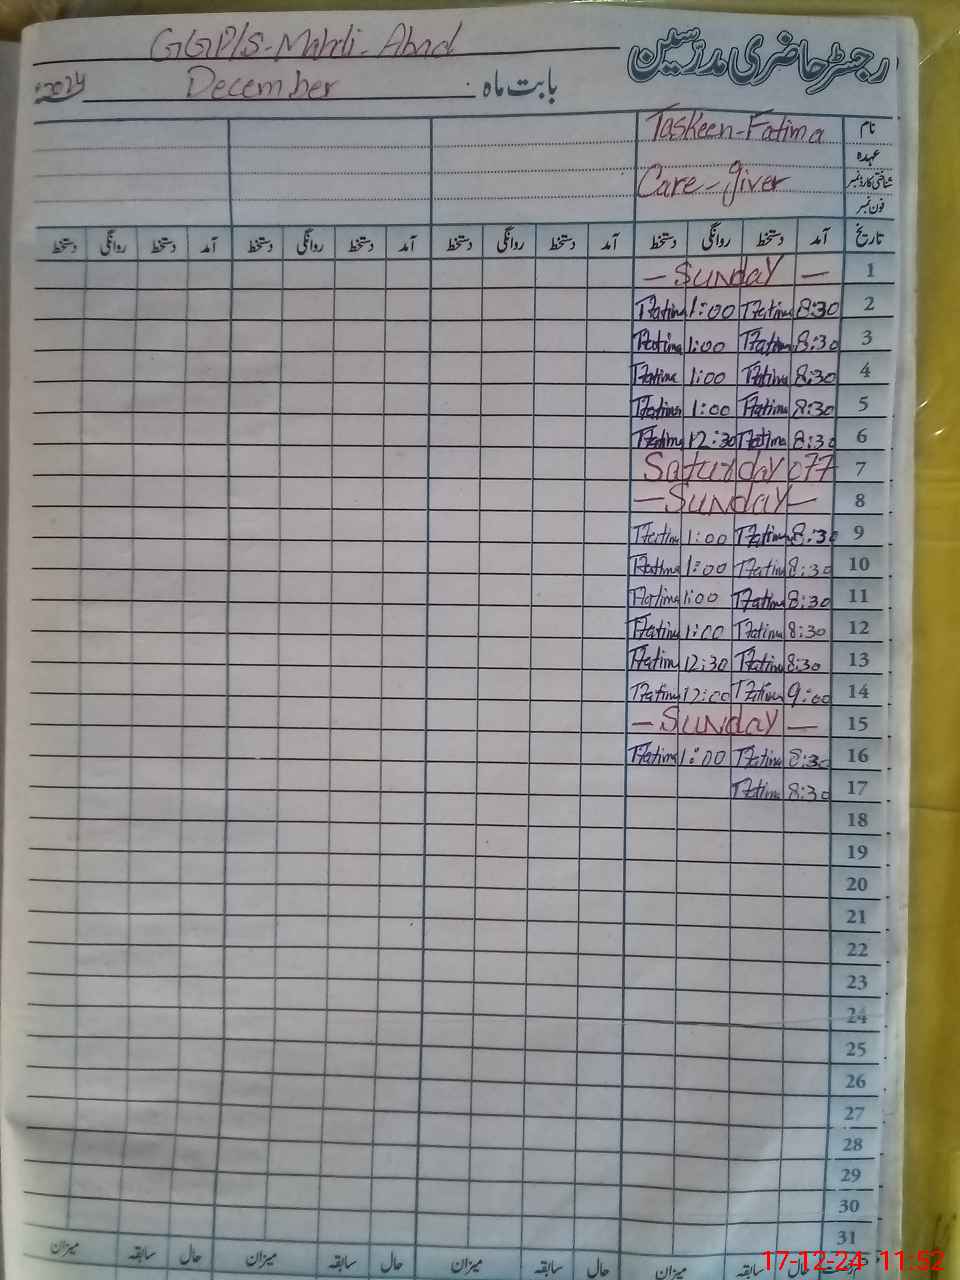 GGP/S-Mahdi-Abad رجسٹر حاضری مدرسین
2024 December بابت ماہ
Taskeen-Fatima نام
عہدہ
Care-giver شناختی کارڈ نمبر
فون نمبر
تاریخ آمد دستخط روانگی دستخط آمد دستخط روانگی دستخط آمد دستخط روانگی دستخط آمد دستخط روانگی دستخط
— Sunday — 1
TFatima 1:00 TFatima 8:30 2
TFatima 1:00 TFatima 8:30 3
TFatima 1:00 TFatima 8:30 4
TFatima 1:00 TFatima 8:30 5
TFatima 12:30 TFatima 8:30 6
Saturday off 7
— Sunday — 8
TFatima 1:00 TFatima 8:30 9
TFatima 1:00 TFatima 8:30 10
TFatima 1:00 TFatima 8:30 11
TFatima 1:00 TFatima 8:30 12
TFatima 12:30 TFatima 8:30 13
TFatima 12:00 TFatima 9:00 14
— Sunday — 15
TFatima 1:00 TFatima 8:30 16
TFatima 8:30 17
18
19
20
21
22
23
24
25
26
27
28
29
30
31
حال سابقہ میزان حال سابقہ میزان حال سابقہ میزان حال سابقہ میزان
17-12-24 11:52